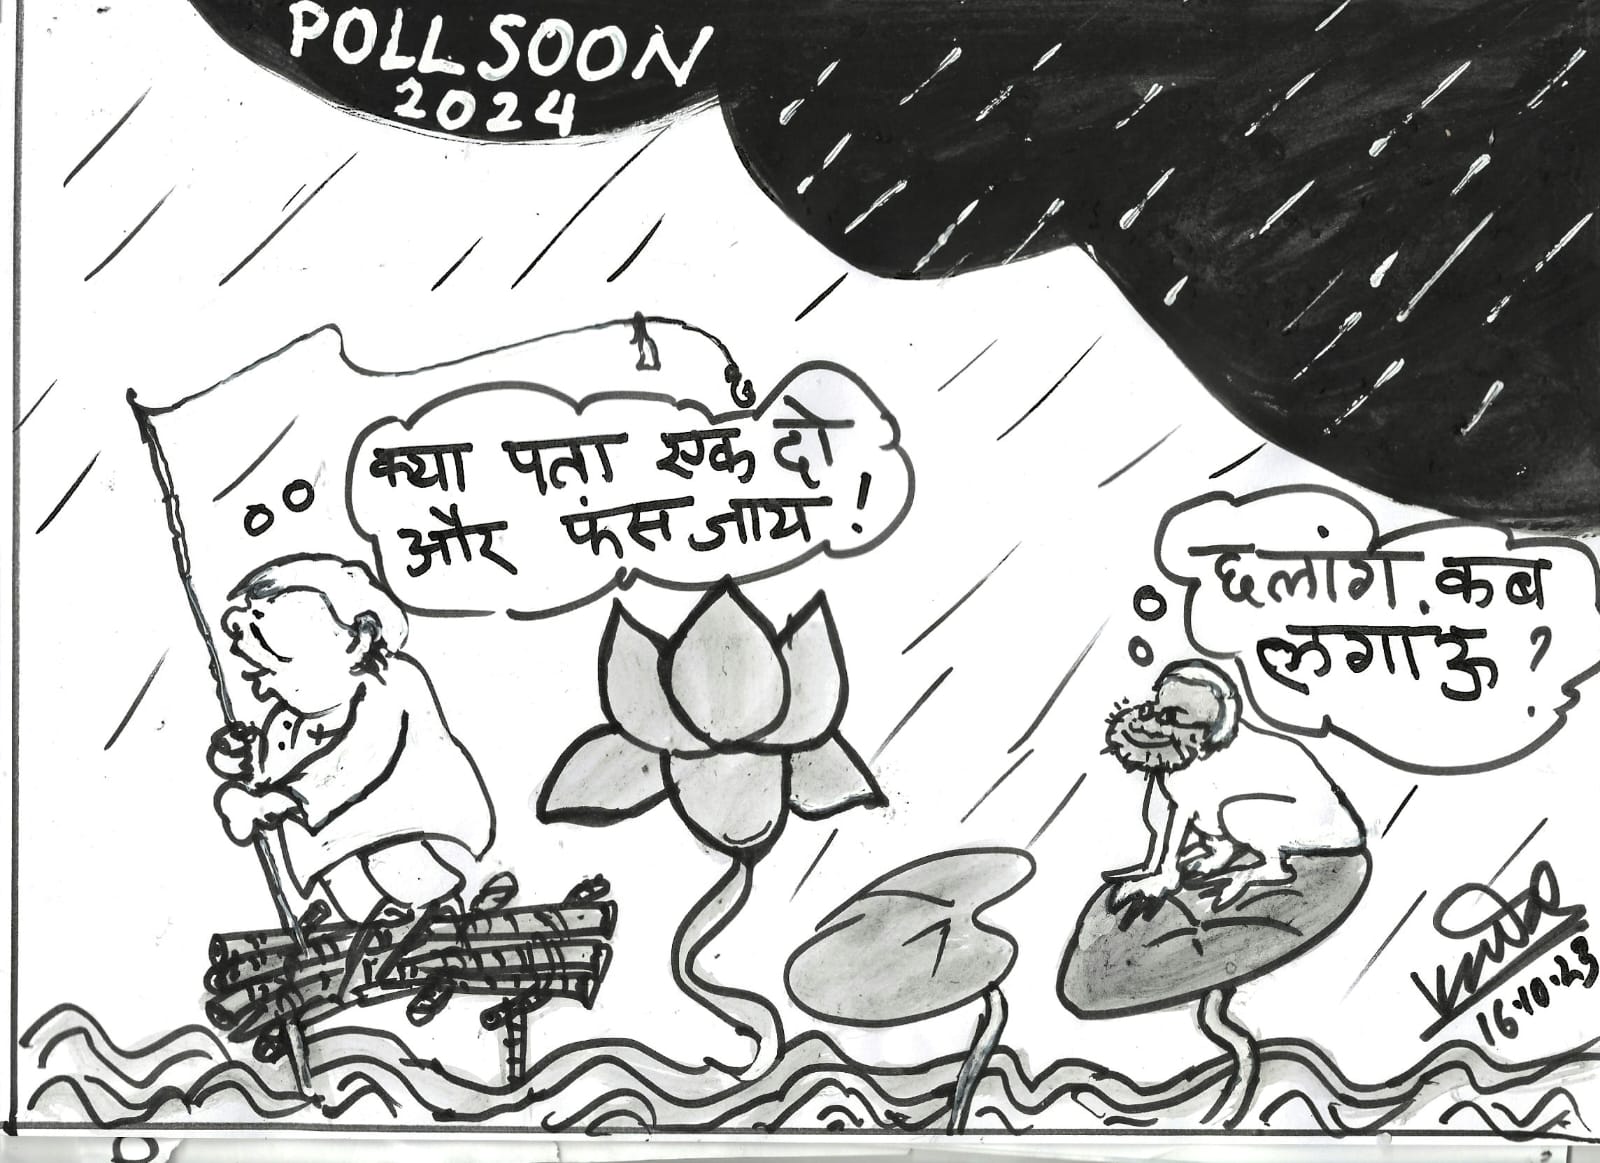 POLL SOON
2024
क्या पता एक दो
और फंस जाय!
छलांग कब
लगाऊं?
16.10.23